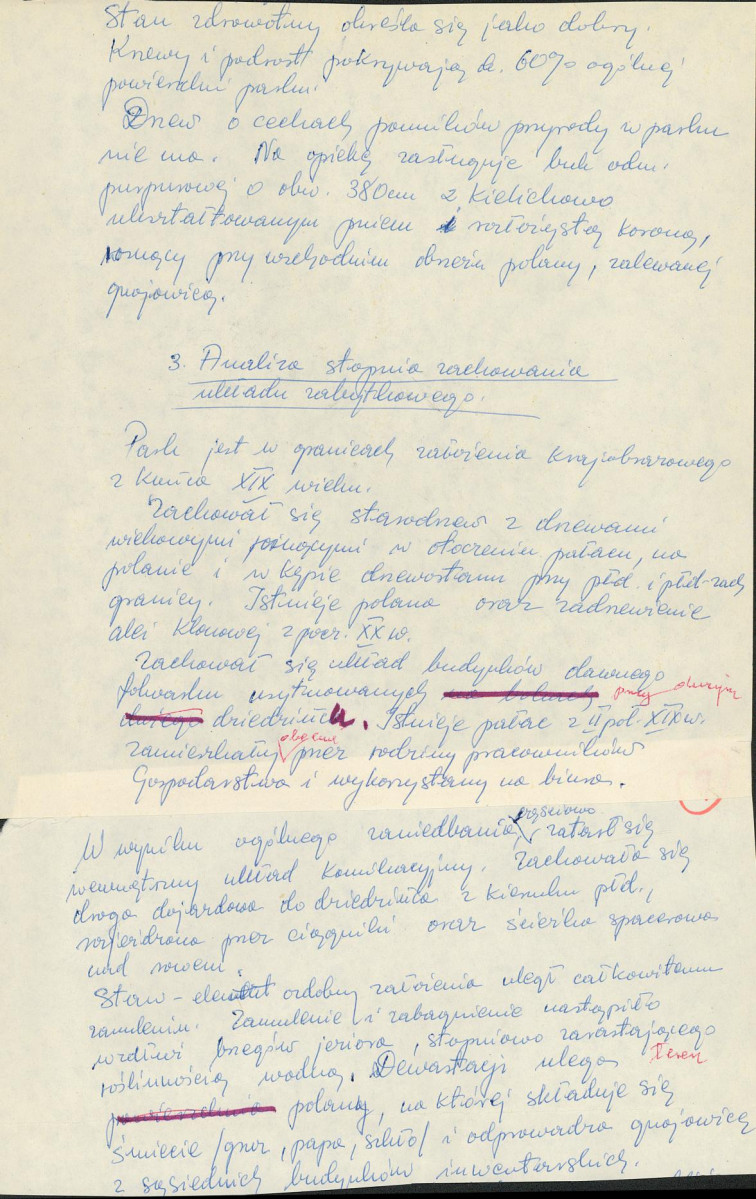 Stan zdrowotny określa się jako dobry.
Krzewy i podrost pokrywają ok. 60% ogólnej
powierzchni parku.
Drzew o cechach pomników przyrody w parku
nie ma. Na opiekę zasługuje buk odm.
purpurowej o obw. 380cm z kielichowo
ukształtowanym pniem i rozłożystą koroną,
rosnący przy wschodnim obrzeżu polany, zalewanej
gnojowicą.
3. Analiza stopnia zachowania
układu zabytkowego.
Park jest w granicach założenia krajobrazowego
z końca XIX wieku.
Zachował się starodrzew z drzewami
wiekowymi rosnącymi w otoczeniu pałacu, na
polanie i w kępie drzewostanu przy płd. i płd-zach
granicy. Istnieje polana oraz zadrzewienie
alei klonowej z pocz. XX w.
Zachował się układ budynków dawnego
folwarku usytuowanych na bokach przy dużym
dużego dziedzińcu. Istnieje pałac z II poł. XIX w.
zamieszkały obecnie przez rodziny pracowników
Gospodarstwa i wykorzystany na biura.
W wyniku ogólnego zaniedbania, częściowo zatarł się
wewnętrzny układ komunikacyjny. Zachowała się
droga dojazdowa do dziedzińca z kierunku płd.,
rozjeżdżona przez ciągniki oraz ścieżka spacerowa
nad rowem.
Staw - element ozdobny założenia uległ całkowitemu
zamuleniu. Zamulenie i zabagnienie nastąpiło
wzdłuż brzegów jeziora, stopniowo zarastającego
roślinnością wodną. Dewastacji ulega teren
powierzchnia polany, na której składuje się
śmiecie /gruz, papa, szkło/ i odprowadza gnojowicę
z sąsiednich budynków inwentarskich.